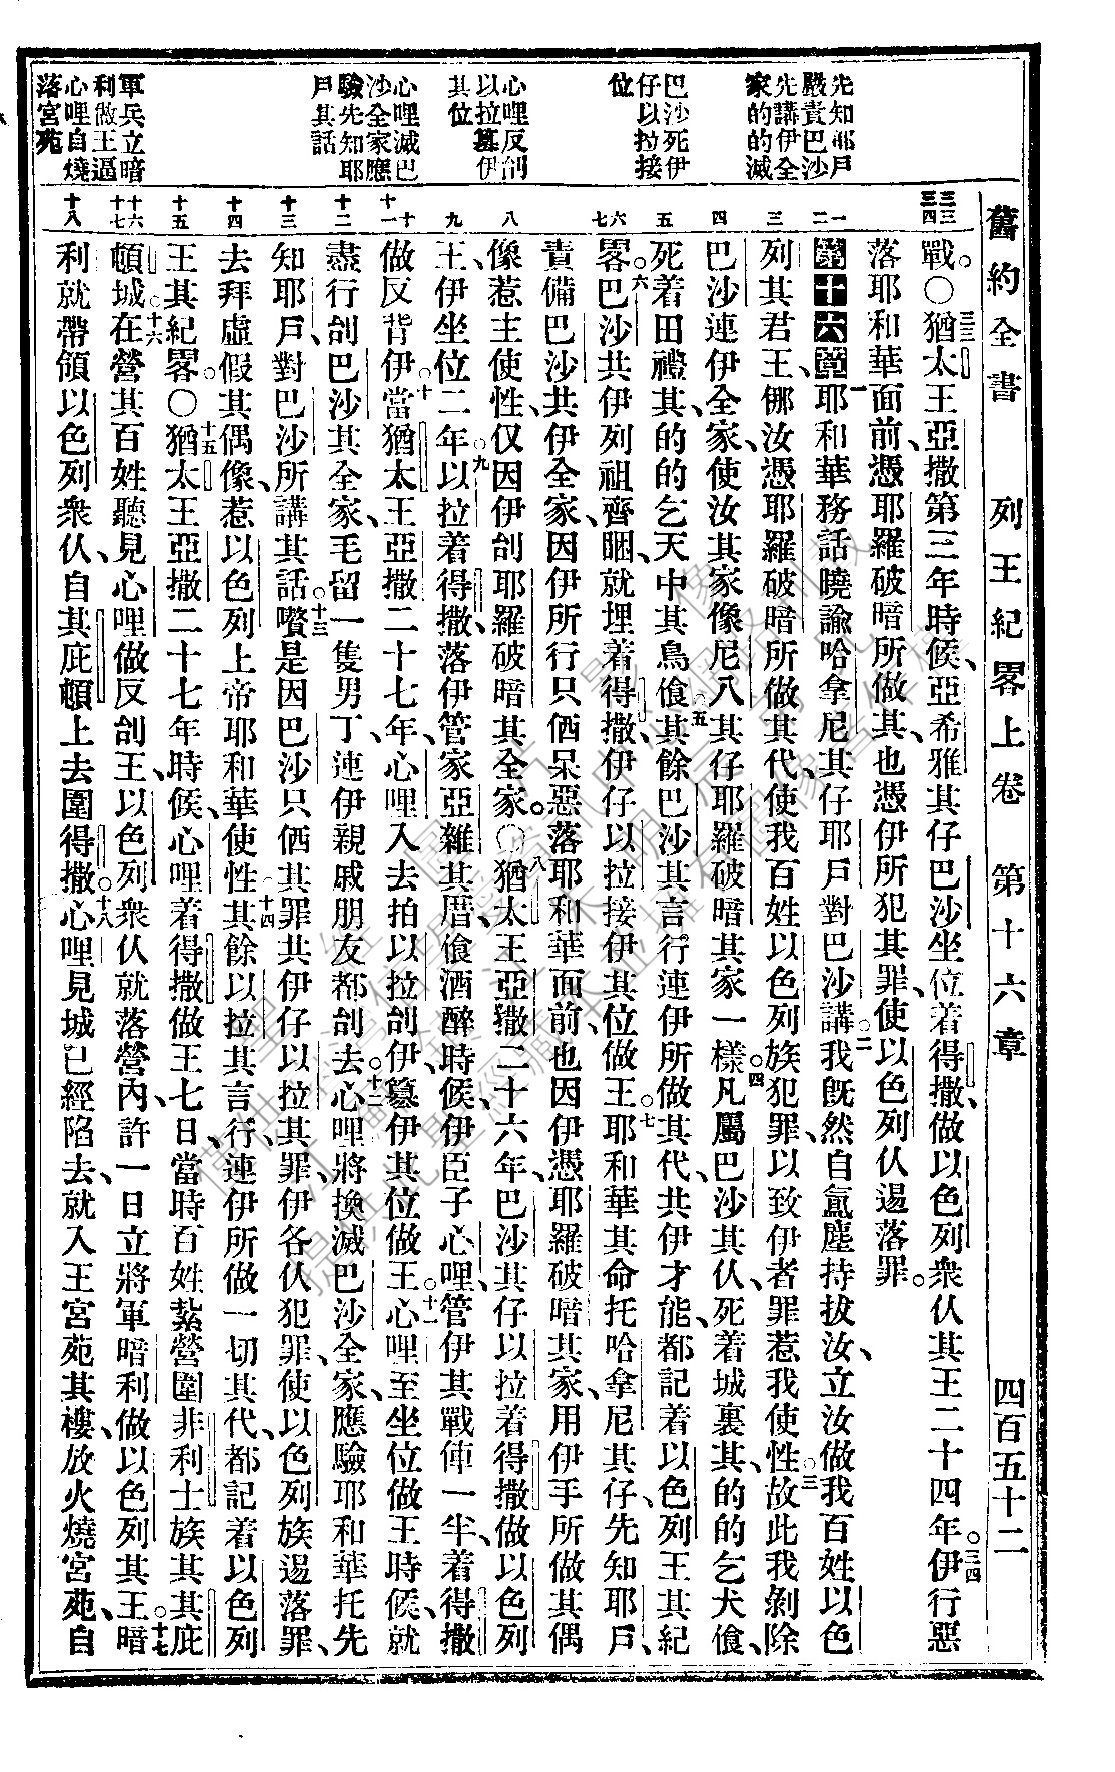 舊約全書　列王紀畧上卷　第十六章　四百五十二
先知耶戶
嚴責巴沙
先講伊全
家的的滅
巴沙死伊
仔以拉接
位
心哩反刣
以拉篡伊
其位
心哩滅巴
沙全家應
驗先知耶
戶其話
軍兵立暗
利做王逼
心哩自燒
落宮苑
三三 三四
一 二
三
四
五
六 七
八
九
十 十一
十二
十三
十四
十五
十六 十七
十八
戰。〇三三猶太王亞撒第三年時候、亞希雅其仔巴沙坐位着得撒、做以色列衆仈其王二十四年。三四伊行惡
落耶和華面前、憑耶羅破暗所做其、也憑伊所犯其罪、使以色列仈逿落罪。
第十六章 一耶和華務話曉諭哈拿尼其仔耶戶對巴沙講。二我旣然自㿝塵持拔汝、立汝做我百姓以色
列其君王、𠆧汝憑耶羅破暗所做其代、使我百姓以色列族犯罪、以致伊者罪惹我使性。三故此我剝除
巴沙連伊全家、使汝其家像尼八其仔耶羅破暗其家一樣。四凡屬巴沙其仈、死着城裏其的的乞犬飡、
死着田禮其、的的乞天中其鳥飡。五其餘巴沙其言行連伊所做其代、共伊才能、都記着以色列王其紀
畧。六巴沙共伊列祖齊睏、就埋着得撒、伊仔以拉接伊其位做王。七耶和華其命托哈拿尼其仔、先知耶戶、
責備巴沙、共伊全家、因伊所行只俻呆惡、落耶和華面前、也因伊憑耶羅破暗其家、用伊手所做其偶
像、惹主使性、仅因伊刣耶羅破暗其全家。〇八猶太王亞撒二十六年、巴沙其仔以拉着得撒、做以色列
王、伊坐位二年。九以拉着得撒、落伊管家亞雜其厝、飡酒醉時候、伊臣子心哩、管伊其戰俥一半、着得撒
做反背伊。十當猶太王亞撒二十七年、心哩入去拍以拉刣伊、篡伊其位做王。十一心哩至坐位做王時候、就
盡行刣巴沙其全家、毛留一隻男丁、連伊親戚朋友都刣去。十二心哩將換滅巴沙全家、應驗耶和華托先
知耶戶、對巴沙所講其話。十三嚽是因巴沙只俻其罪共伊仔以拉其罪、伊各仈犯罪、使以色列族逿落罪、
去拜虛假其偶像、惹以色列上帝耶和華使性。十四其餘以拉其言行、連伊所做一切其代、都記着以色列
王其紀畧。〇十五猶太王亞撒二十七年時候、心哩着得撒做王七日、當時百姓紮營圍非利士族其其庇
頓城。十六在營其百姓聽見心哩做反刣王、以色列衆仈就落營內、許一日立將軍暗利做以色列其王。十七暗
利就帶領以色列衆仈、自其庇頓上去圍得撒。十八心哩見城已經陷去、就入王宮苑其樓、放火燒宮苑、自